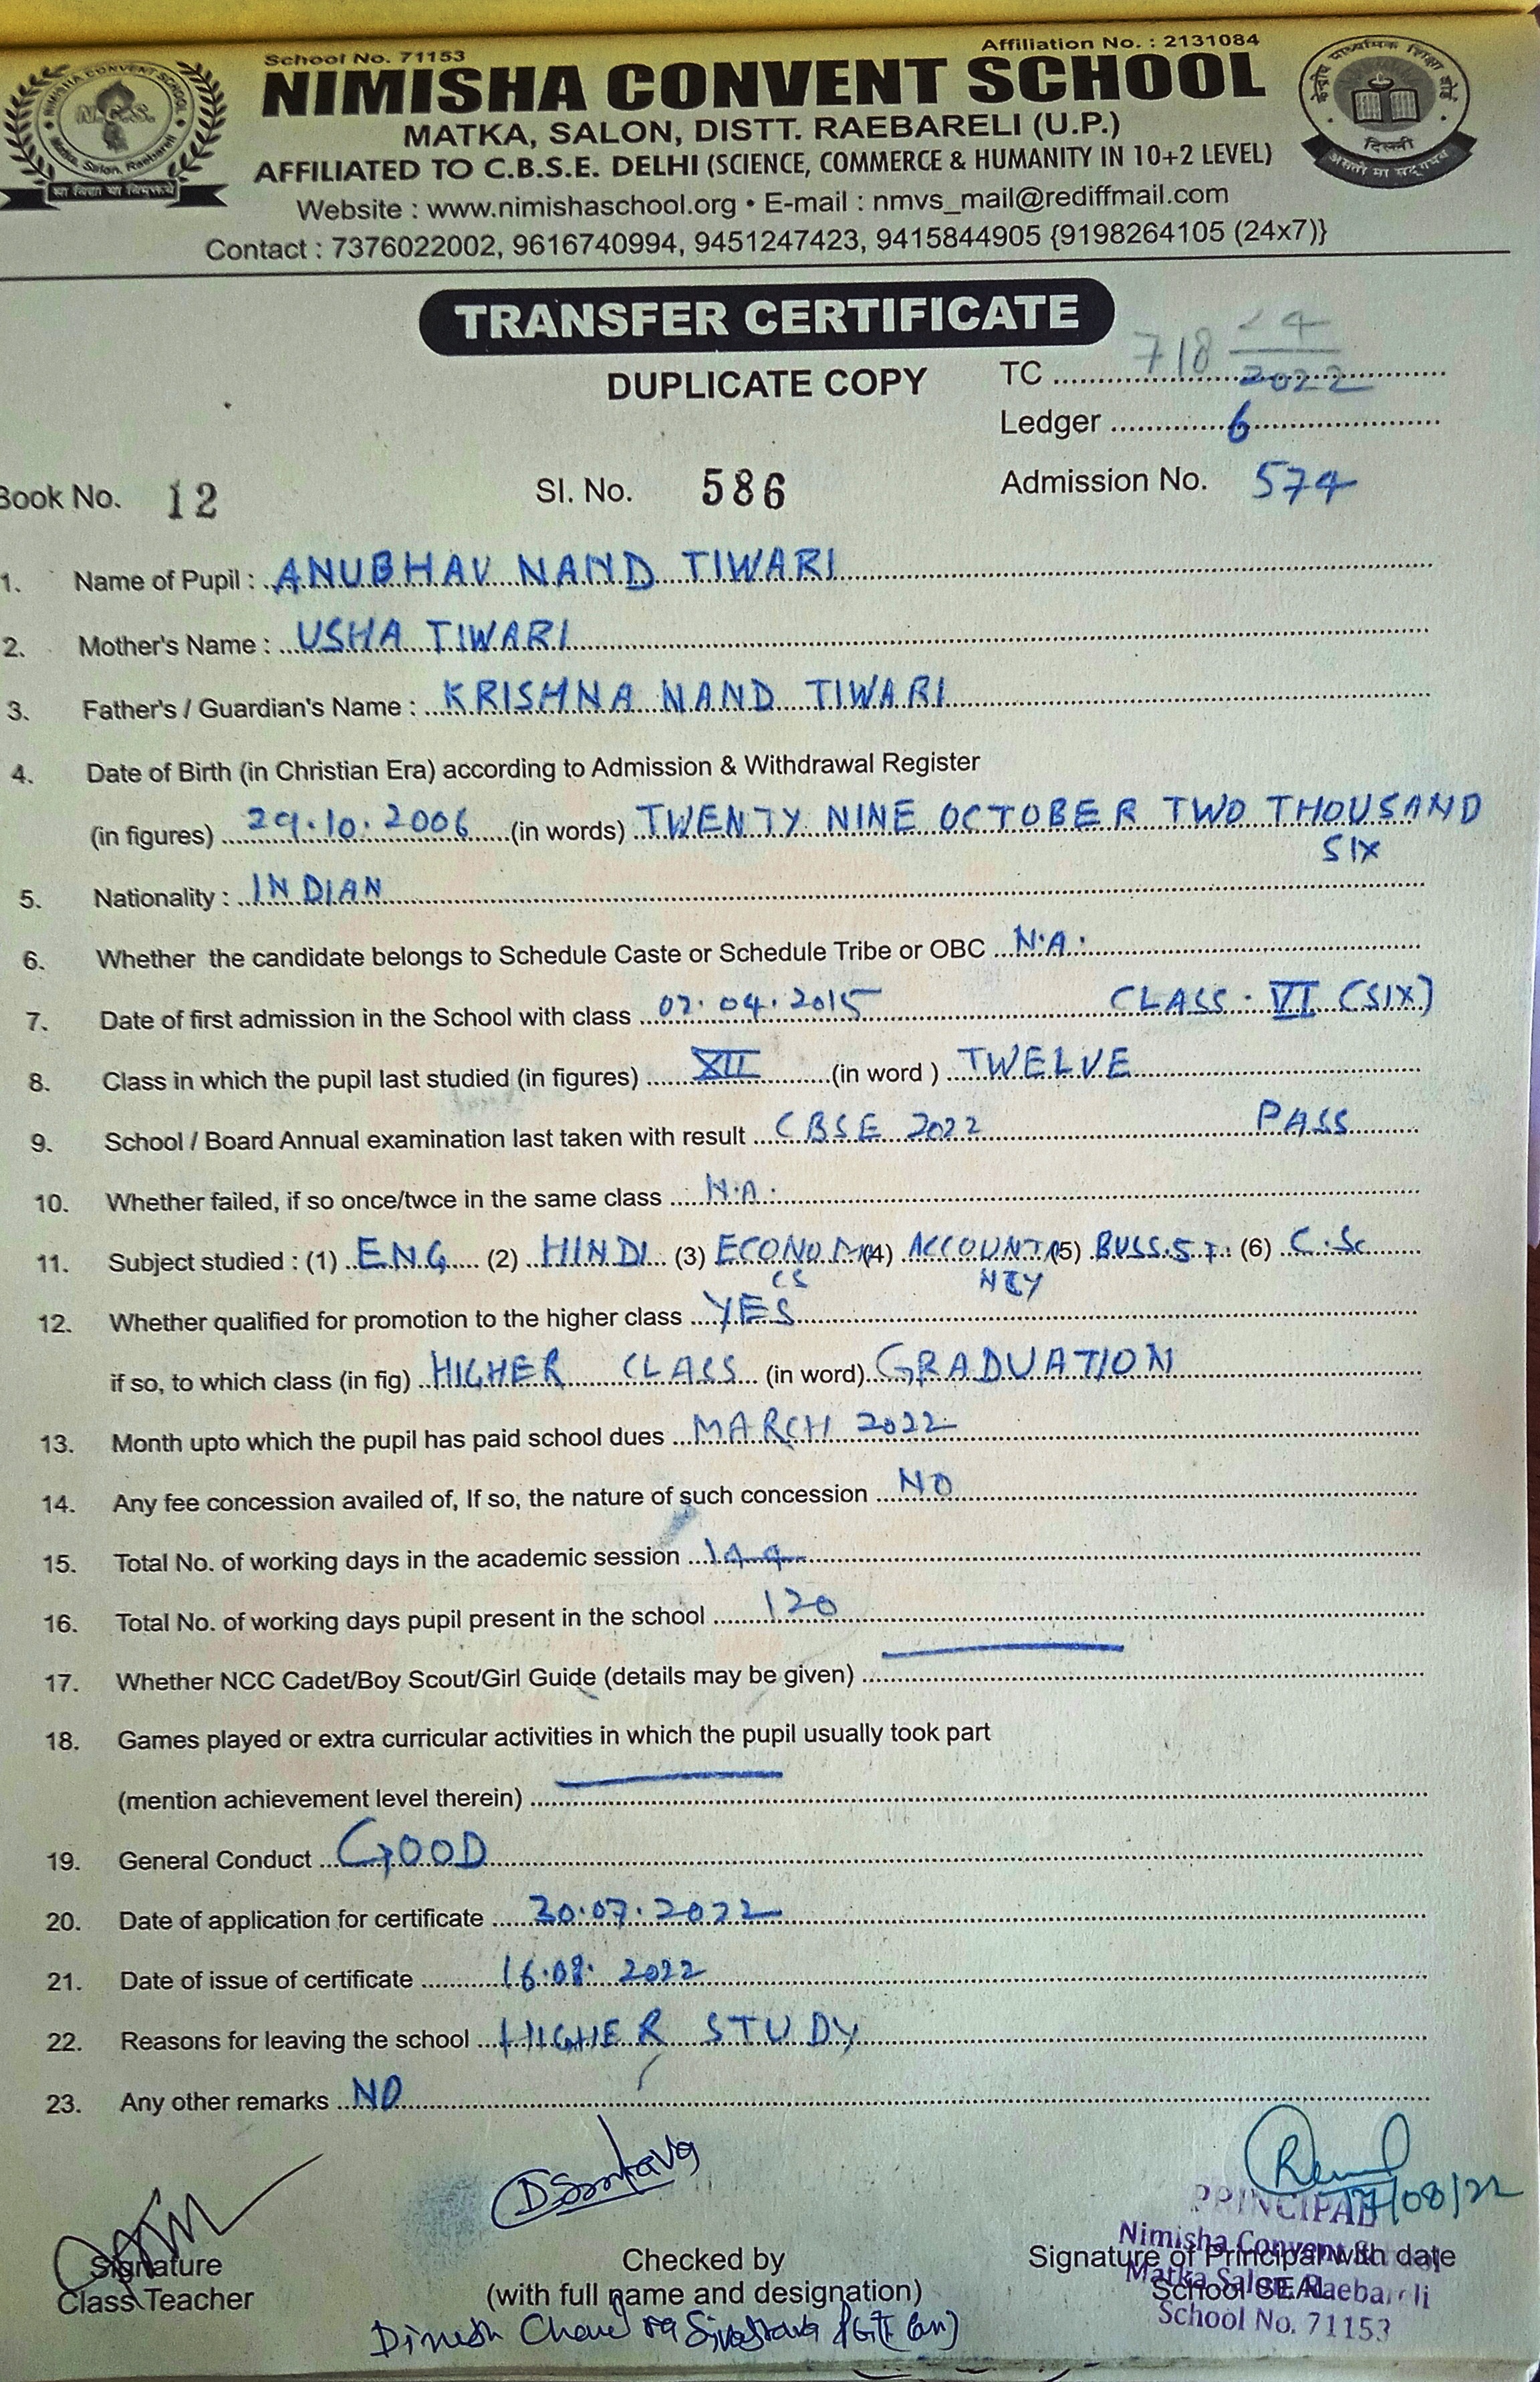 School No. 71153
Affiliation No. : 2131084
NIMISHA CONVENT SCHOOL
MATKA, SALON, DISTT. RAEBARELI (U.P.)
AFFILIATED TO C.B.S.E. DELHI (SCIENCE, COMMERCE & HUMANITY IN 10+2 LEVEL)
Website : www.nimishaschool.org • E-mail : nmvs_mail@rediffmail.com
Contact : 7376022002, 9616740994, 9451247423, 9415844905 {9198264105 (24x7)}
NIMISHA CONVENT SCHOOL
N.C.S.
Matka, Salon, Raebareli
सा विद्या या विमुक्तये
केन्द्रीय माध्यमिक शिक्षा बोर्ड
दिल्ली
असतो मा सद्गमय
TRANSFER CERTIFICATE
DUPLICATE COPY
TC 718 2022
Ledger 6
Book No. 12 Sl. No. 586 Admission No. 574
1. Name of Pupil : ANUBHAV NAND TIWARI
2. Mother's Name : USHA TIWARI
3. Father's / Guardian's Name : KRISHNA NAND TIWARI
4. Date of Birth (in Christian Era) according to Admission & Withdrawal Register
(in figures) 29.10.2006 (in words) TWENTY NINE OCTOBER TWO THOUSAND
SIX
5. Nationality : INDIAN
6. Whether the candidate belongs to Schedule Caste or Schedule Tribe or OBC N.A.
7. Date of first admission in the School with class 07.04.2015 CLASS. VI (SIX)
8. Class in which the pupil last studied (in figures) XII (in word ) TWELVE
9. School / Board Annual examination last taken with result CBSE 2022 PASS
10. Whether failed, if so once/twce in the same class N.A.
11. Subject studied : (1) ENG (2) HINDI (3) ECONOMI (4) ACCOUNTA (5) BUSS.ST. (6) C.Sc
CS NCY
12. Whether qualified for promotion to the higher class YES
if so, to which class (in fig) HIGHER CLASS (in word) GRADUATION
13. Month upto which the pupil has paid school dues MARCH 2022
14. Any fee concession availed of, If so, the nature of such concession NO
15. Total No. of working days in the academic session 144
16. Total No. of working days pupil present in the school 120
17. Whether NCC Cadet/Boy Scout/Girl Guide (details may be given)
18. Games played or extra curricular activities in which the pupil usually took part
(mention achievement level therein)
19. General Conduct GOOD
20. Date of application for certificate 30.07.2022
21. Date of issue of certificate 16.08.2022
22. Reasons for leaving the school HIGHER STUDY
23. Any other remarks NO
17/08/22
PRINCIPAL
Nimisha Convent
Matka Salon, Raebareli
School No. 71153
Signature
Class Teacher
Checked by
(with full name and designation)
Dinesh
Signature of Principal with date
School SEAL